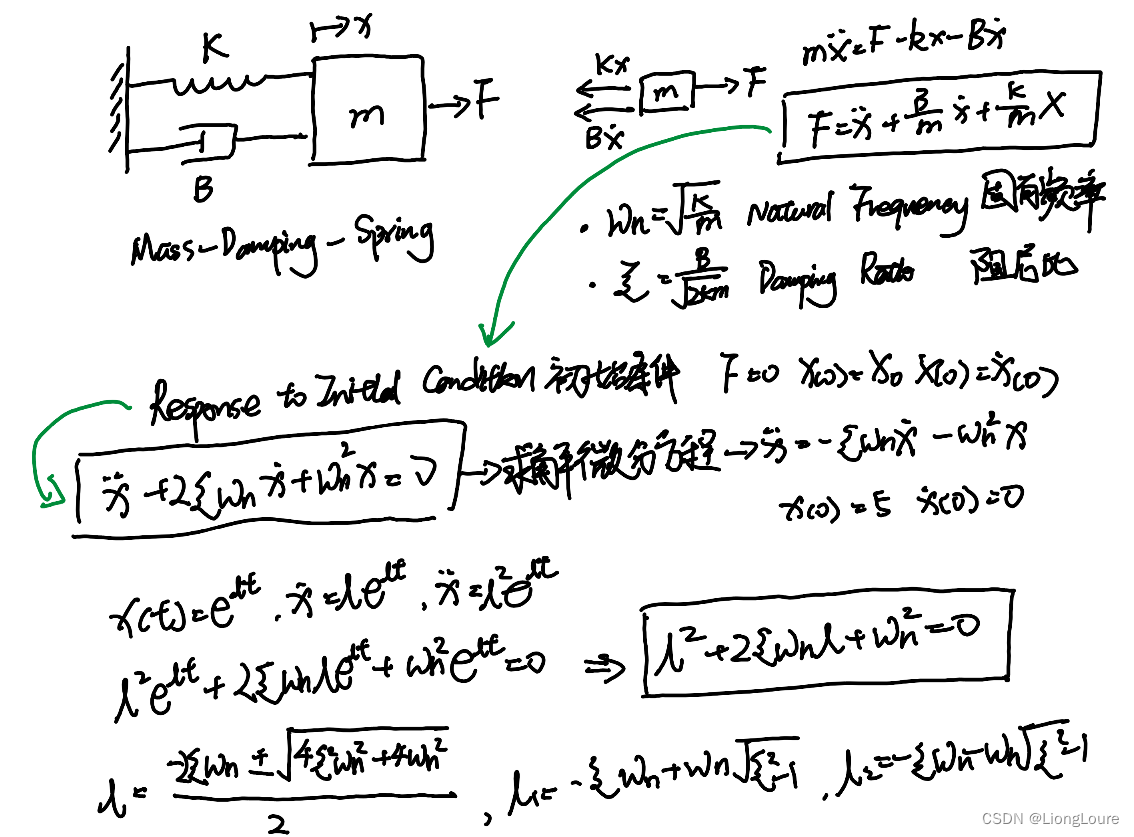 K
x
m
F
B
Mass-Damping-Spring
Kx
m
F
Bẋ
mẍ=F-kx-Bẋ
F=ẍ+B/m ẋ+K/m X
· Wn=√(K/m) Natural Frequency 固有频率
· ξ=B/√(2km) Damping Ratio 阻尼比
Response to Initial Condition 初始条件 F=0 X(0)=X₀ Ẋ(0)=Ẋ(0)
ẍ+2ξWnẋ+Wn²x=0 → 求解微分方程 → ẍ=-ξWnẋ-Wn²x
x(0)=5 ẋ(0)=0
x(t)=e^λt, ẋ=λe^λt, ẍ=λ²e^λt
λ²e^λt+2ξWnλe^λt+Wn²e^λt=0 ⇒ λ²+2ξWnλ+Wn²=0
λ=(-2ξWn±√(4ξ²Wn²+4Wn²))/2, λ₁=-ξWn+Wn√(ξ²-1), λ₂=-ξWn-Wn√(ξ²-1)
CSDN @LiongLoure